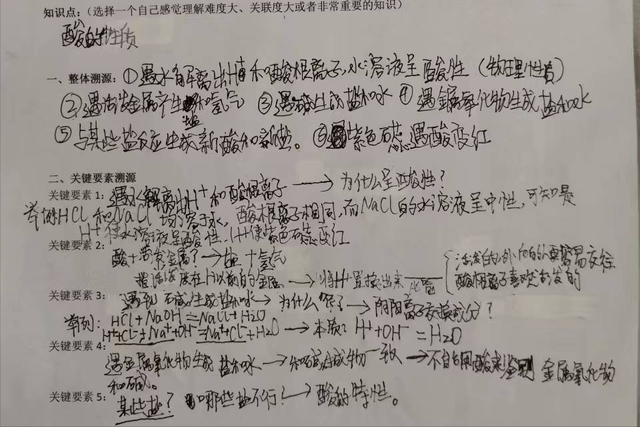 知识点：（选择一个自己感觉理解难度大、关联度大或者非常重要的知识）
酸的性质
一、整体溯源：①遇水解离出H⁺和酸根离子，水溶液呈酸性（物理性质）
②遇活泼金属产生盐和氢气 ③遇碱生成盐和水 ④遇金属氧化物生成盐和水
⑤与某些盐反应生成新酸和新盐。⑥紫色石蕊遇酸变红
二、关键要素溯源
关键要素1：遇水解离出H⁺和酸根离子→为什么呈酸性？
举例HCl和NaCl均溶于水，酸根离子相同，而NaCl的水溶液呈中性，可知是
H⁺使水溶液呈酸性，H⁺使紫色石蕊变红
关键要素2：
酸+活泼金属？→盐+氢气
活泼在H以前的金属→将H置换出来
关键要素3：遇到碱生成盐和水→为什么？→阴阳离子交换成分？
举例：HCl+NaOH=NaCl+H₂O
H⁺+Cl⁻+Na⁺+OH⁻=Na⁺+Cl⁻+H₂O→本质：H⁺+OH⁻=H₂O
关键要素4：
遇金属氧化物生成盐和水→和碱生成物一致→不能用酸来鉴别金属氧化物
和碱。
关键要素5：
某些盐？哪些盐不行？→酸的特性。